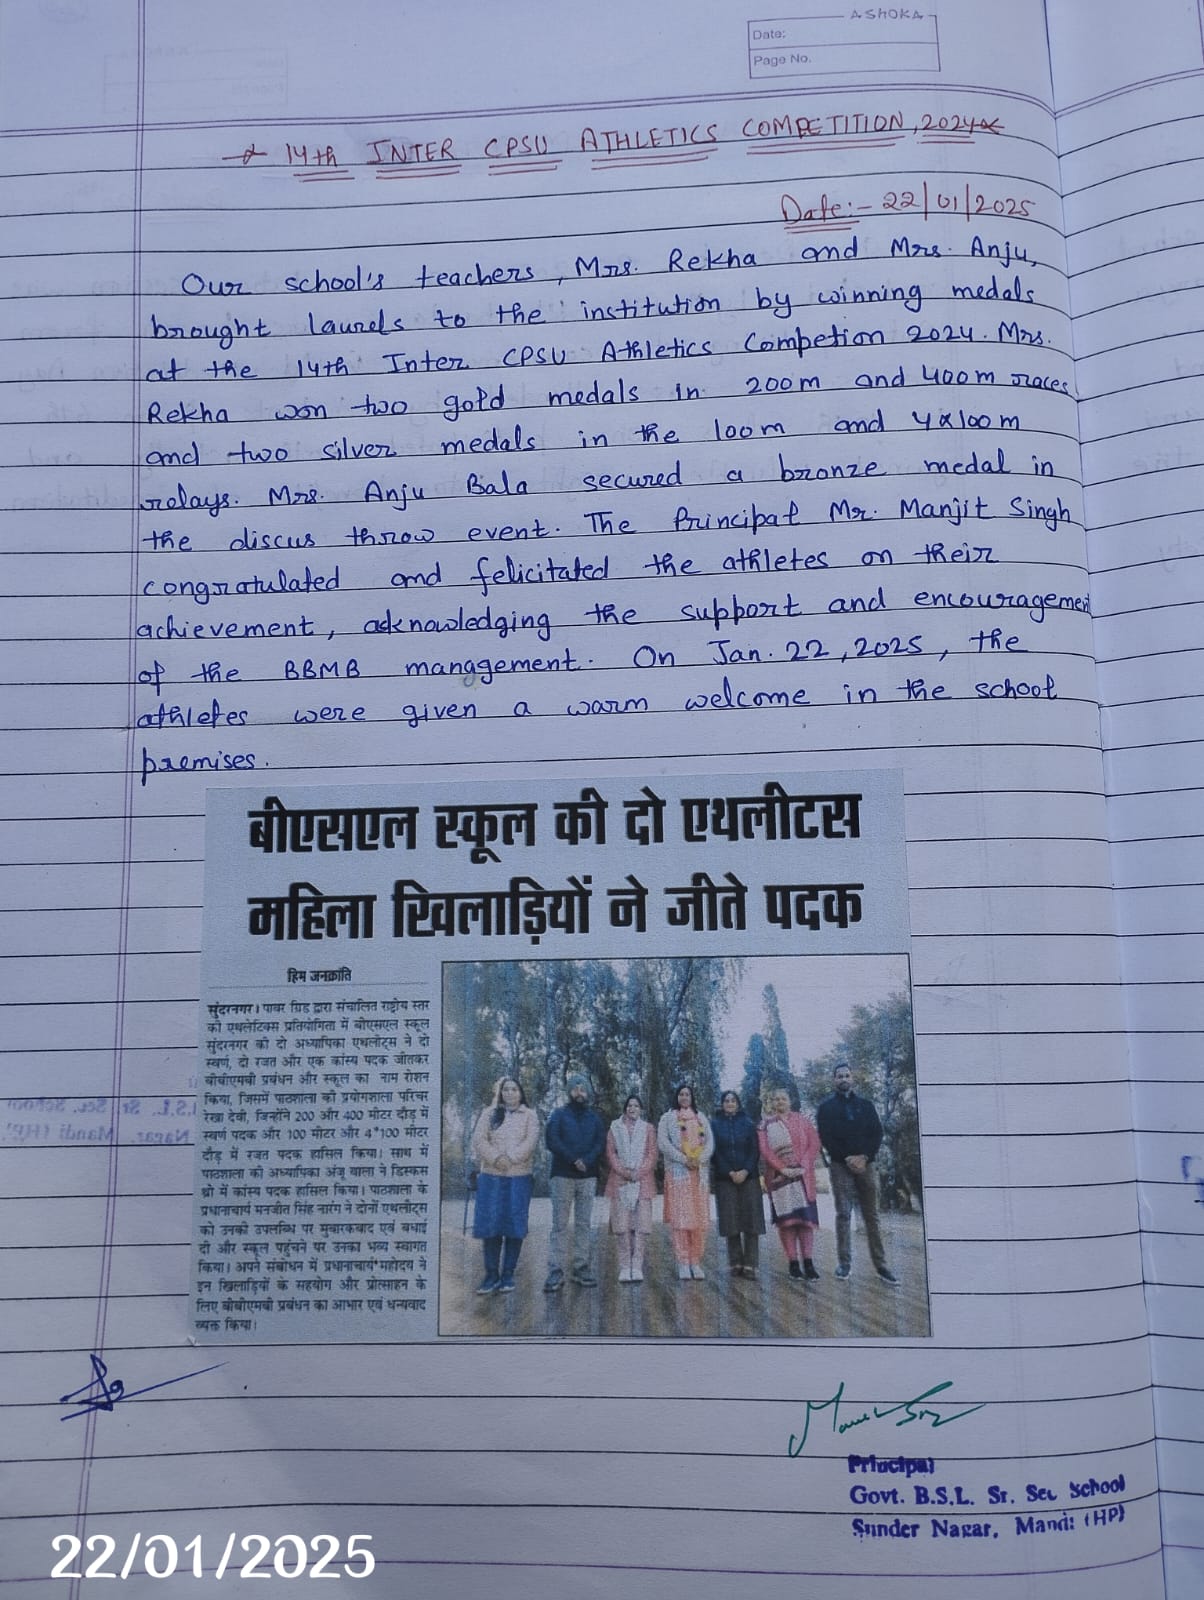 ASHOKA
Date:
Page No.
14th INTER CPSU ATHLETICS COMPETITION, 2024
Date:- 22/01/2025
Our school's teachers, Mrs. Rekha and Mrs. Anju,
brought laurels to the institution by winning medals
at the 14th Inter CPSU Athletics Competion 2024. Mrs.
Rekha won two gold medals in 200m and 400m races
and two silver medals in the 100m and 4x100m
relays. Mrs. Anju Bala secured a bronze medal in
the discus throw event. The Principal Mr. Manjit Singh
congratulated and felicitated the athletes on their
achievement, acknowledging the support and encouragement
of the BBMB management. On Jan. 22, 2025, the
athletes were given a warm welcome in the school
premises.
बीएसएल स्कूल की दो एथलीटस
महिला खिलाड़ियों ने जीते पदक
हिम जनक्रांति
सुंदरनगर। पावर ग्रिड द्वारा संचालित राष्ट्रीय स्तर
की एथलेटिक्स प्रतियोगिता में बीएसएल स्कूल
सुंदरनगर की दो अध्यापिका एथलीट्स ने दो
स्वर्ण, दो रजत और एक कांस्य पदक जीतकर
बीबीएमबी प्रबंधन और स्कूल का नाम रोशन
किया, जिसमें पाठशाला की प्रयोगशाला परिचर
रेखा देवी, जिन्होंने 200 और 400 मीटर दौड़ में
स्वर्ण पदक और 100 मीटर और 4*100 मीटर
दौड़ में रजत पदक हासिल किया। साथ में
पाठशाला की अध्यापिका अंजू बाला ने डिस्कस
थ्रो में कांस्य पदक हासिल किया। पाठशाला के
प्रधानाचार्य मनजीत सिंह नारंग ने दोनों एथलीट्स
को उनकी उपलब्धि पर मुबारकबाद एवं बधाई
दी और स्कूल पहुंचने पर उनका भव्य स्वागत
किया। अपने संबोधन में प्रधानाचार्य महोदय ने
इन खिलाड़ियों के सहयोग और प्रोत्साहन के
लिए बीबीएमबी प्रबंधन का आभार एवं धन्यवाद
व्यक्त किया।
Principal
Govt. B.S.L. Sr. Sec School
Sunder Nagar, Mandi (HP)
22/01/2025